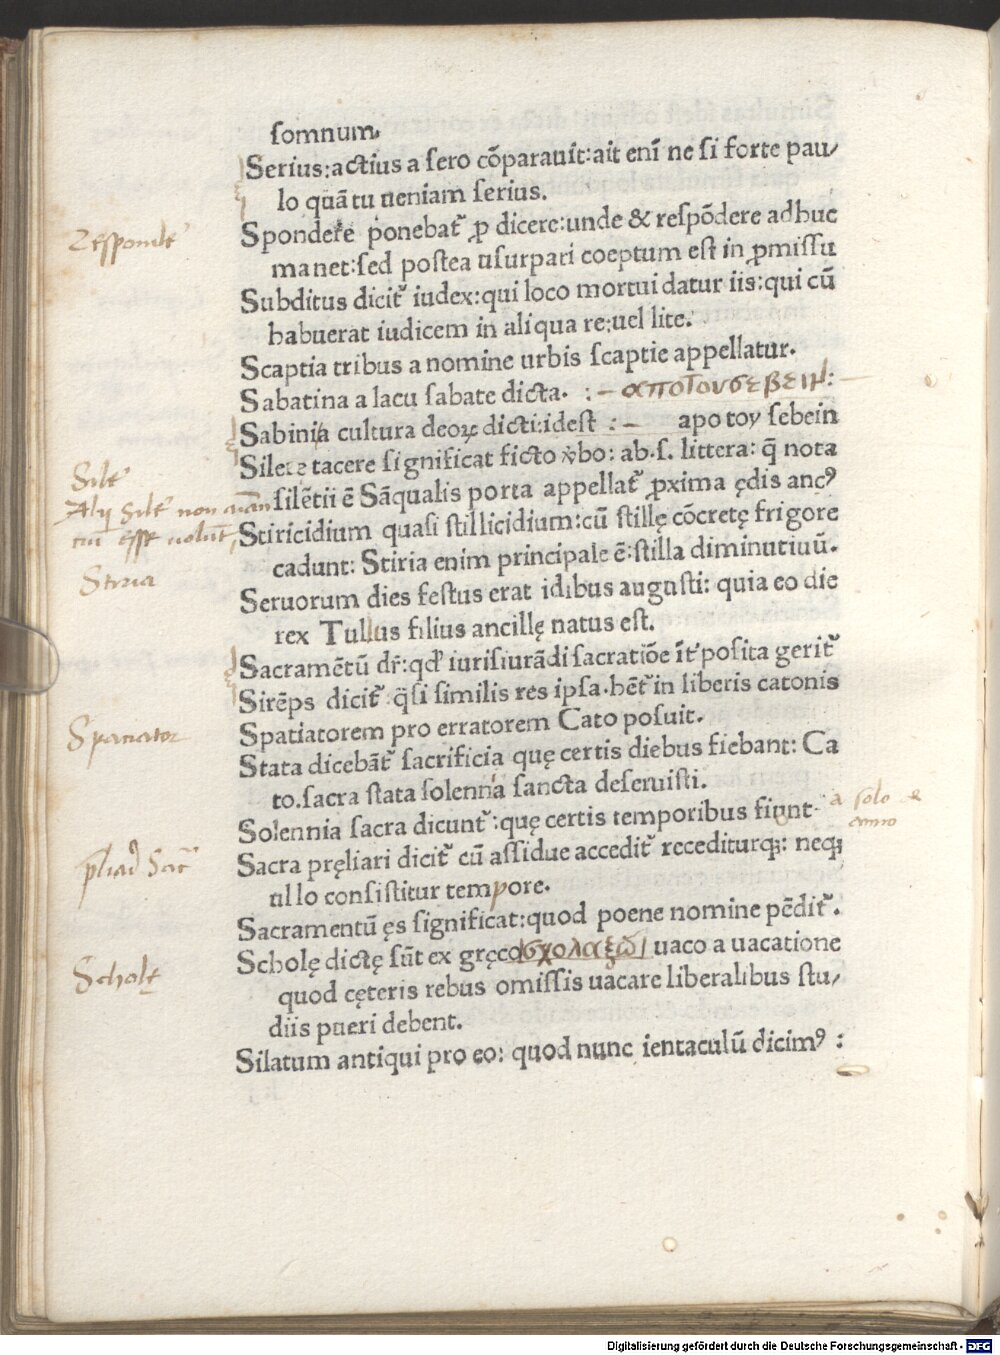 somnum.
Serius: actius a sero cõparauit: ait enĩ ne si forte pau/
lo quã tu ueniam serius.
Spondere ponebat᷑ ꝓ dicere: unde & respõdere adhuc
Respondeř
manet: sed postea usurpari coeptum est in ꝓmissu
Subditus dicit᷑ iudex: qui loco mortui datur iis: qui cũ
habuerat iudicem in aliqua re: uel lite.
Scaptia tribus a nomine urbis scaptie appellatur.
Sabatina a lacu sabate dicta. :– αποτουσεβειν:
Sabini a cultura deoꝝ dicti: idest :– apo toy sebein
Silere tacere significat ficto v̊bo: ab .s. littera: q̃ nota
Silere
silẽtii ẽ Sãqualis porta appellat᷑ ꝓxima ędis ancꝰ
Alij Silere non
esse uolunt,
Stiricidium quasi stillicidium: cũ stillę cõcretę frigore
cadunt: Stiria enim principale ẽ: stilla diminutiuũ.
Stiria
Seruorum dies festus erat idibus augusti: quia eo die
rex Tullius filius ancillę natus est.
Sacramẽtũ dr̃: qđ iurisiurãdi sacratiõe ĩt᷑posita gerit᷑
Sirẽps dicit᷑ q̃si similis res ipsa. hẽt᷑ in liberis catonis
Spatiatorem pro erratorem Cato posuit.
Spatiator
Stata dicebãt᷑ sacrificia quę certis diebus fiebant: Ca
to. sacra stata solennia sancta deseruisti.
Solennia sacra dicunt᷑: quę certis temporibus fiunt
a solo &
anno
Sacra pręliari dicit᷑ cũ assidue accedit᷑ recediturqȝ: neqȝ
ullo consistitur tempore.
Sacramentũ ęs significat: quod poene nomine pẽdit᷑.
Scholę dictę sũt ex gręco σχολαζω uaco a uacatione
Scholę
quod cęteris rebus omissis uacare liberalibus stu/
diis pueri debent.
Silatum antiqui pro eo: quod nunc ientaculũ dicimꝰ :
Digitalisierung gefördert durch die Deutsche Forschungsgemeinschaft - DFG